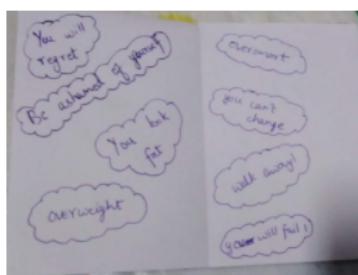 You will
regret
Be ashamed of yourself
You look
fat
overweight
oversmart
you can't
change
walk away!
you will fail !